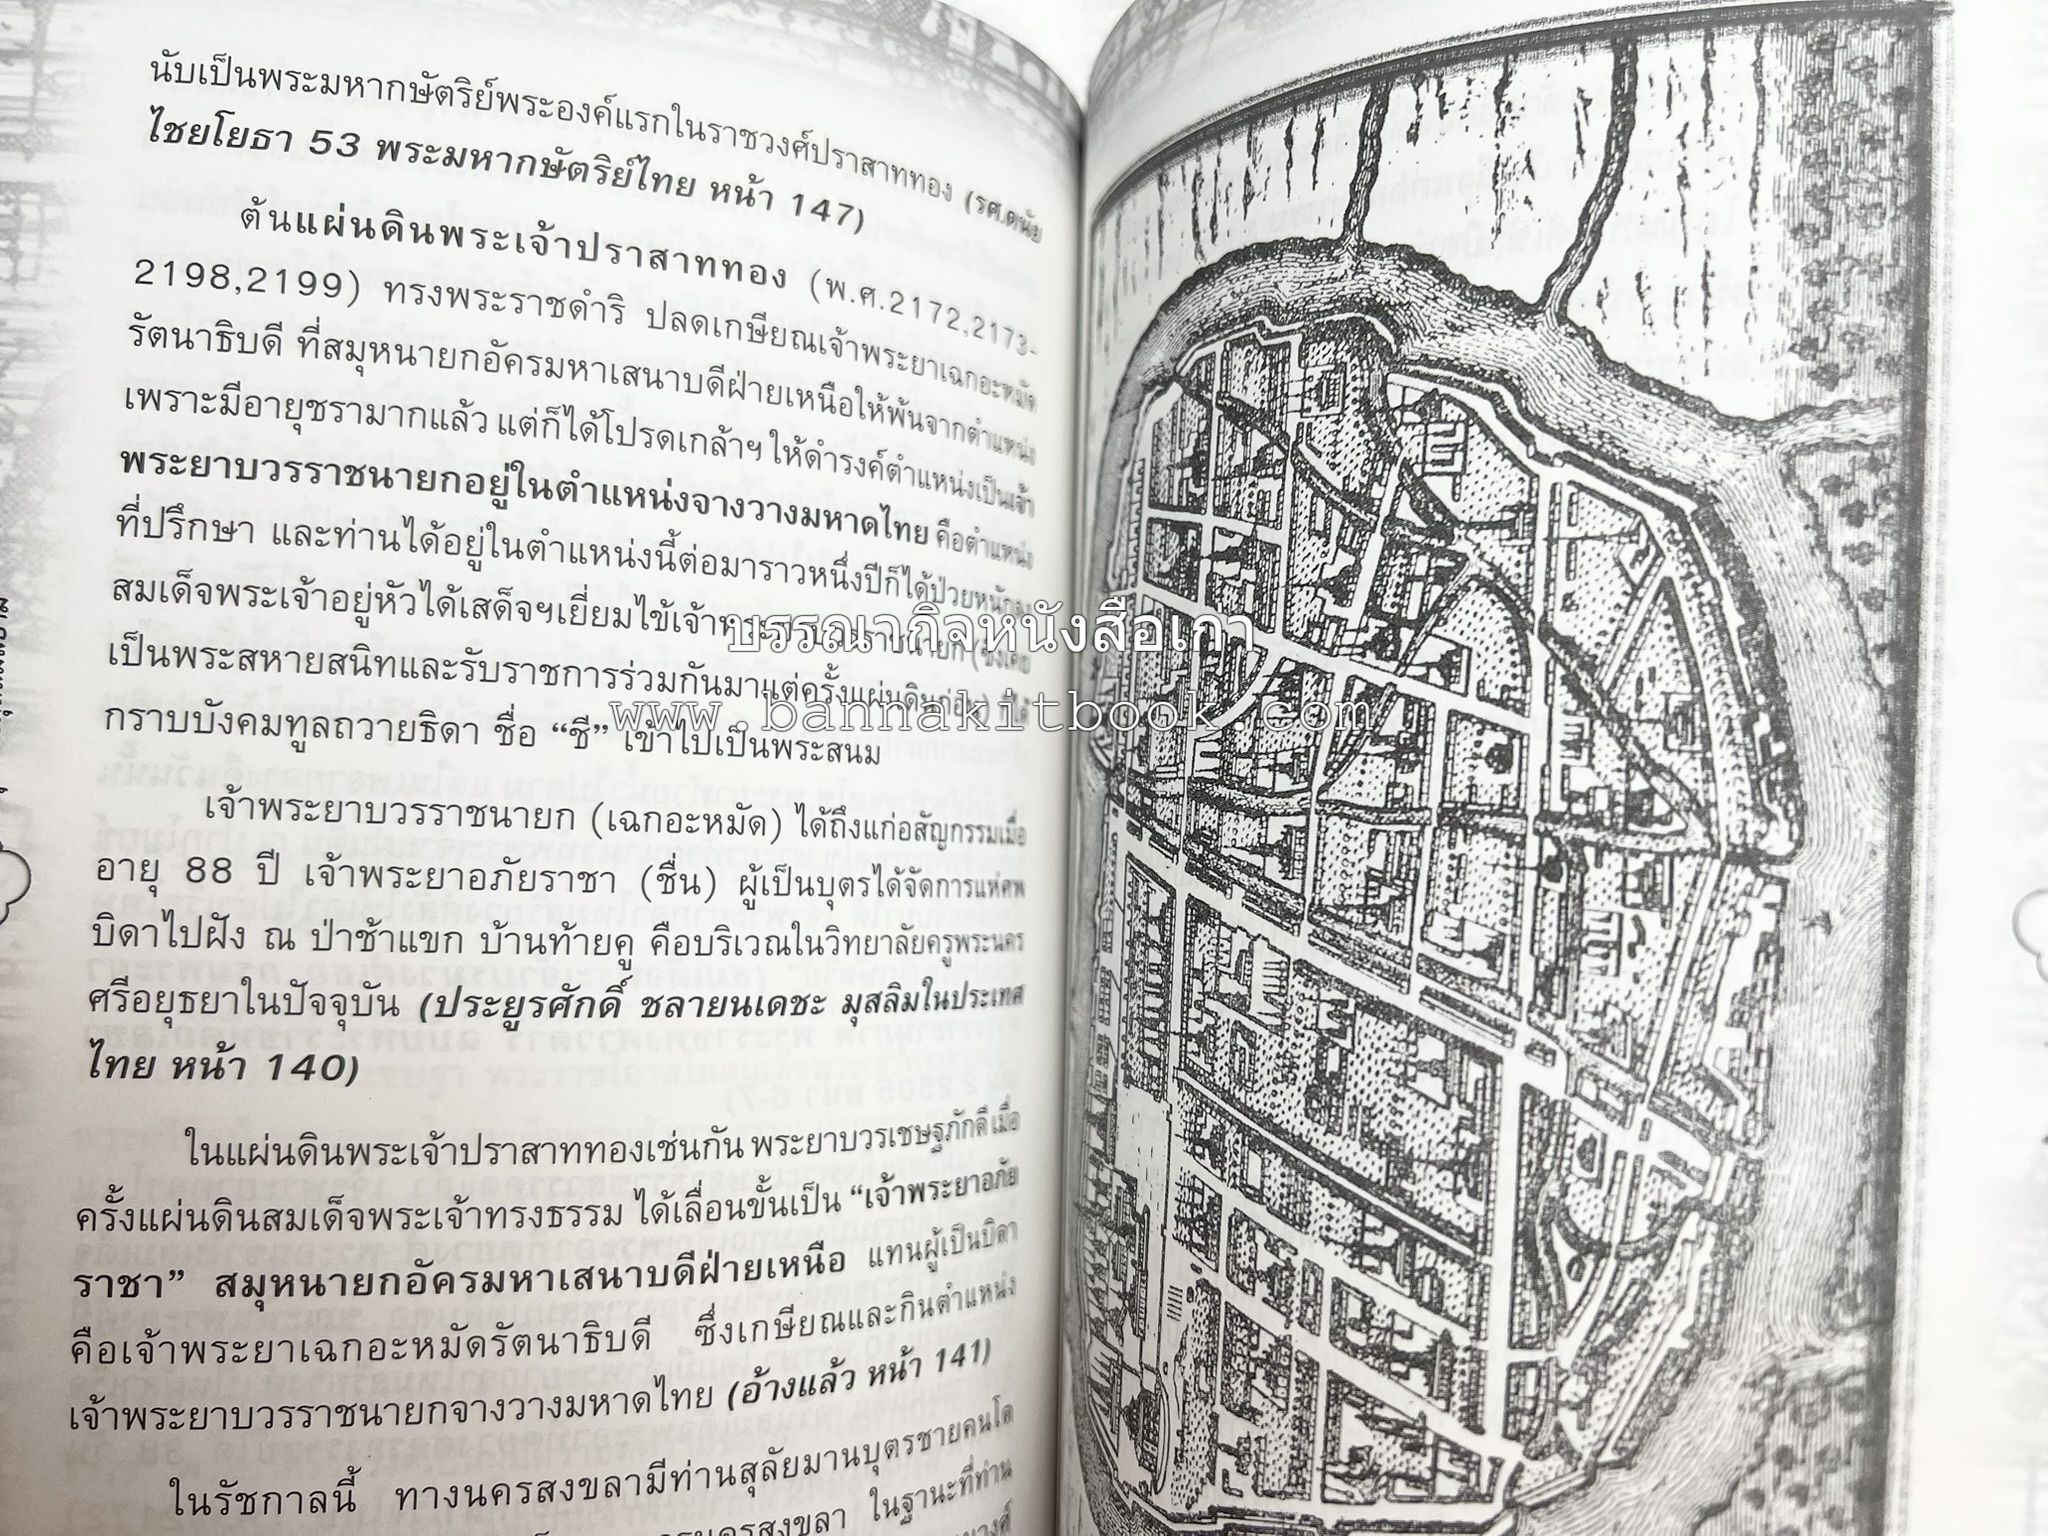 นับเป็นพระมหากษัตริย์พระองค์แรกในราชวงศ์ปราสาททอง (รศ.ดนัย
ไชยโยธา 53 พระมหากษัตริย์ไทย หน้า 147)
ต้นแผ่นดินพระเจ้าปราสาททอง (พ.ศ.2172,2173-
2198,2199) ทรงพระราชดำริ ปลดเกษียณเจ้าพระยาเฉกอะหมัด
รัตนาธิบดี ที่สมุหนายกอัครมหาเสนาบดีฝ่ายเหนือให้พ้นจากตำแหน่ง
เพราะมีอายุชรามากแล้ว แต่ก็ได้โปรดเกล้าฯ ให้ดำรงค์ตำแหน่งเป็นเจ้า
พระยาบวรราชนายกอยู่ในตำแหน่งจางวางมหาดไทย คือตำแหน่ง
ที่ปรึกษา และท่านได้อยู่ในตำแหน่งนี้ต่อมาราวหนึ่งปีก็ได้ป่วยหนักลง
สมเด็จพระเจ้าอยู่หัวได้เสด็จฯเยี่ยมไข้เจ้าพระยาบวรราชนายก (ซึ่งเคย
เป็นพระสหายสนิทและรับราชการร่วมกันมาแต่ครั้งแผ่นดินก่อน) ได้
กราบบังคมทูลถวายธิดา ชื่อ “ชี” เข้าไปเป็นพระสนม
เจ้าพระยาบวรราชนายก (เฉกอะหมัด) ได้ถึงแก่อสัญกรรมเมื่อ
อายุ 88 ปี เจ้าพระยาอภัยราชา (ชื่น) ผู้เป็นบุตรได้จัดการแห่ศพ
บิดาไปฝัง ณ ป่าช้าแขก บ้านท้ายคู คือบริเวณในวิทยาลัยครูพระนคร
ศรีอยุธยาในปัจจุบัน (ประยูรศักดิ์ ชลายนเดชะ มุสลิมในประเทศ
ไทย หน้า 140)
ในแผ่นดินพระเจ้าปราสาททองเช่นกัน พระยาบวรเชษฐภักดีเมื่อ
ครั้งแผ่นดินสมเด็จพระเจ้าทรงธรรม ได้เลื่อนขั้นเป็น “เจ้าพระยาอภัย
ราชา” สมุหนายกอัครมหาเสนาบดีฝ่ายเหนือ แทนผู้เป็นบิดา
คือเจ้าพระยาเฉกอะหมัดรัตนาธิบดี ซึ่งเกษียณและกินตำแหน่ง
เจ้าพระยาบวรราชนายกจางวางมหาดไทย (อ้างแล้ว หน้า 141)
ในรัชกาลนี้ ทางนครสงขลามีท่านสุลัยมานบุตรชายคนโต
นครสงขลา ในฐานะที่ท่าน
บรรณากิจหนังสือเก่า
www.bannakitbook.com